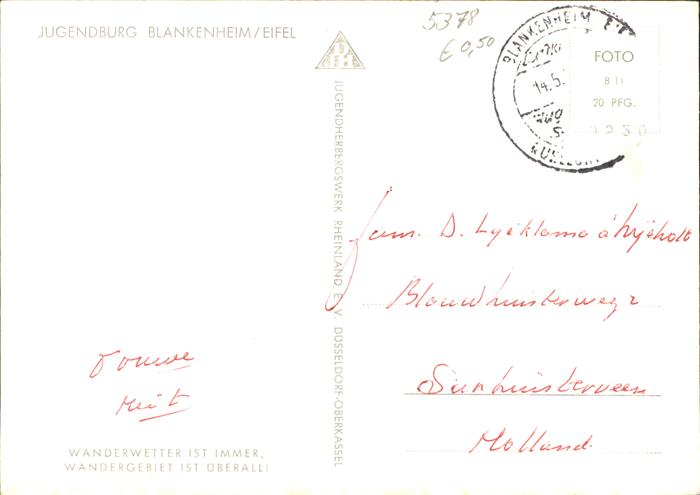 JUGENDBURG BLANKENHEIM/EIFEL
5378
€ 0,50
BLANKENHEIM
14.5.
FOTO
B 11
20 PFG.
JUGENDHERBERGSWERK RHEINLAND E. V. DÜSSELDORF-OBERKASSEL
Fam. D. Lyćklama á Nijeholt
Blauwhuisterweg 2
Sinthuisterveen
Holland.
Douwe
WANDERWETTER IST IMMER,
WANDERGEBIET IST ÜBERALL!